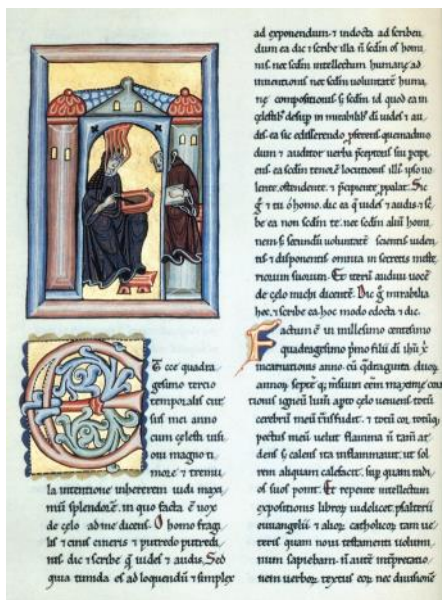 Et ecce quadra
gesimo tercio
temporalis cur
sus mei anno
cum celesti uisi
oni magno ti
more & tremu
la intentione inhererem uidi maxi
mū splendorē. in quo facta ē uox
de celo ad me dicens. O homo fragi
lis & cinis cineris & putredo putredi
nis. dic & scribe q̄ uides & audis. Sed
quia timida es ad loquendū & simplex
ad exponendum & indocta ad scriben
dum ea dic & scribe illa n̄ scdm os homi
nis. nec scdm intellectum humanę ad
inuentionis nec scdm uoluntatē huma
nę compositionis s; scdm id quod ea in
celestib; desup in mirabilib; dī uides & au
dis. ea sic edisserendo pferens. quemadmo
dum & auditor uerba pceptoris sui pcipi
ens. ea scdm tenorē locutionis illi. ipso uo
lente. ostendente. & pcipiente ppalat. Sic
g̊ & tu ó homo. dic ea q̄ uides & audis. & sc̄
be ea non scdm te. nec scdm aliū homi
nem s; secundū uoluntatē scientis uiden
tis & disponentis omnia in secretis miste
riorum suorum. Et iterū audiui uocē
de celo michi dicentē. Dic g̊ mirabilia
hęc. & scribe ea hoc modo edocta & dic.
Factum ē in millesimo centesimo
quadragesimo pmo filii dī ihū x̄
incarnationis anno. cū q̄draginta duoꝝ
annoꝝ septē q; m̄siū eēm maximę coru
tionis igneū lum̄ apto celo ueniens totū
cerebrū meū t̄nsfudit. & totū cor totūq;
pectus meū uelut flamma n̄ tam̄ ar
dens s; calens ita inflammauit. ut sol
rem aliquam calefacit. sup quam radi
os suos ponit. Et repente intellectum
expositionis libroꝝ uidelicet psalterii
euuangelii & alioꝝ catholicoꝝ tam ue
teris quam noui testamenti uolumi
num sapiebam. n̄ autē int̄pretatio
nem uerboꝝ textus eoꝝ nec diuisionē